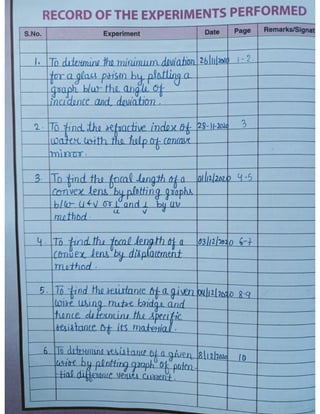 RECORD OF THE EXPERIMENTS PERFORMED
S.No. Experiment Date Page Remarks/Signat
1. To determine the minimum deviation 26/11/2020 1-2
for a glass prism by plotting a
graph b/w the angle of
incidence and deviation.
2. To find the refractive index of 28-11-2020 3
water with the help of concave
mirror.
3. To find the focal length of a 01/12/2020 4-5
convex lens by plotting graphs
b/w u & v or 1/u and 1/v by uv
method.
4. To find the focal length of a 03/12/2020 6-7
convex lens by displacement
method.
5. To find the resistance of a given 04/12/2020 8-9
wire using metre bridge and
hence determine the specific
resistance of its material.
6. To determine resistance of a given 8/12/2020 10
wire by plotting graph of poten
tial difference versus current.